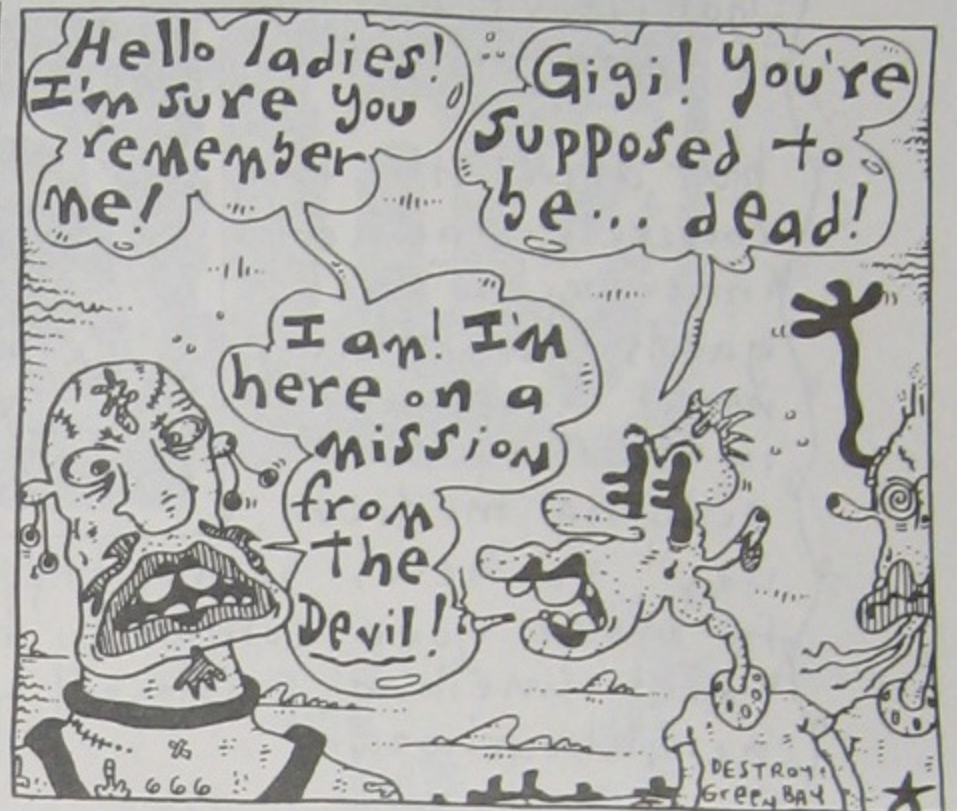 Hello ladies!
I'm sure you
remember
me!
Gigi! You're
supposed to
be... dead!
I am! I'm
here on a
mission
from
the
Devil!
666
DESTROY
Green BAY